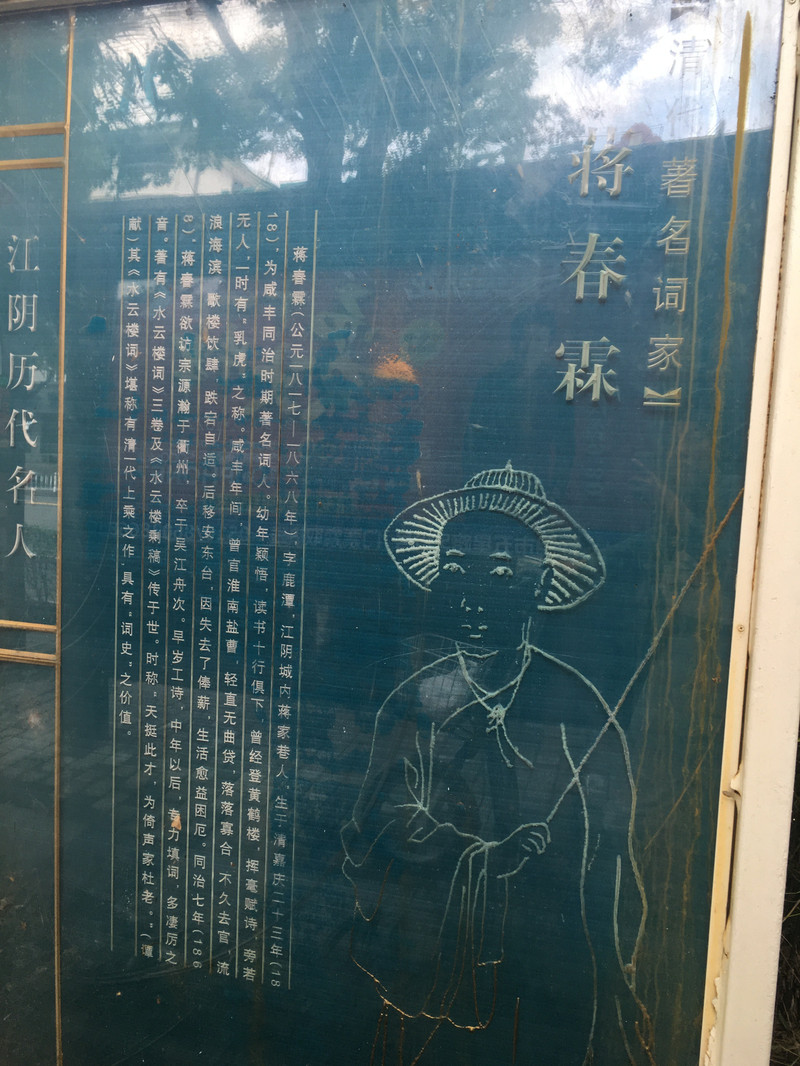 【清代著名词家】
蒋春霖
蒋春霖(公元一八一七—一八六八年),字鹿潭,江阴城内蒋家巷人,生于清嘉庆二十三年(18
18),为咸丰同治时期著名词人。幼年颖悟,读书十行俱下,曾经登黄鹤楼,挥毫赋诗,旁若
无人,一时有“乳虎”之称。咸丰年间,曾官淮南盐曹,轻直无曲贷,落落寡合,不久去官,流
浪海滨,歌楼饮肆,跌宕自适。后移安东台,因失去了俸薪,生活愈益困厄。同治七年(186
8),蒋春霖欲访宗源瀚于衢州,卒于吴江舟次。早岁工诗,中年以后,专力填词,多凄厉之
音。著有《水云楼词》三卷及《水云楼剩稿》传于世。时称“天挺此才,为倚声家杜老。”(谭
献)其《水云楼词》堪称有清一代上乘之作,具有“词史”之价值。
江阴历代名人